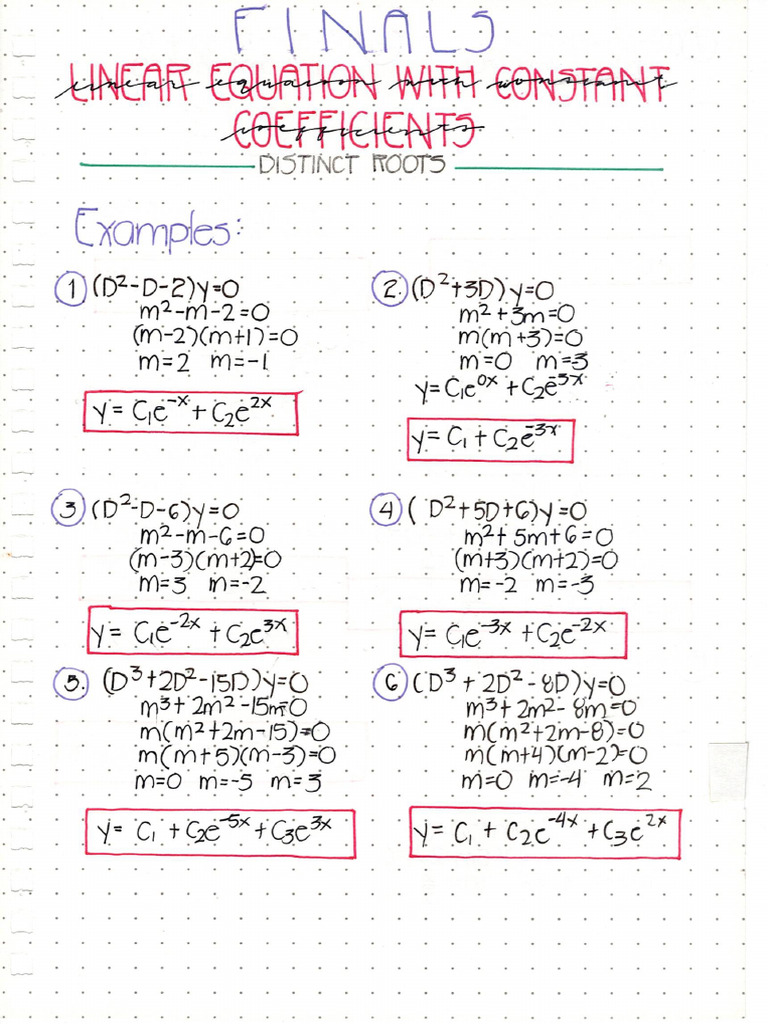 FINALS
LINEAR EQUATION WITH CONSTANT
linear equation with constant
COEFFICIENTS
coefficients
DISTINCT ROOTS
Examples:
1 (D²-D-2)y=0
m²-m-2=0
(m-2)(m+1)=0
m=2 m=-1
y= C₁e⁻ˣ + C₂e²ˣ
2. (D²+3D)y=0
m²+3m=0
m(m+3)=0
m=0 m=-3
y=C₁e⁰ˣ + C₂e⁻³ˣ
y= C₁ + C₂e⁻³ˣ
3 (D²-D-6)y=0
m²-m-6=0
(m-3)(m+2)=0
m=3 m=-2
y= C₁e⁻²ˣ + C₂e³ˣ
4 ( D²+5D+6)y=0
m²+5m+6=0
(m+3)(m+2)=0
m=-2 m=-3
y= C₁e⁻³ˣ + C₂e⁻²ˣ
5. (D³+2D²-15D)y=0
m³+2m²-15m=0
m(m²+2m-15)=0
m(m+5)(m-3)=0
m=0 m=-5 m=3
y= C₁ + C₂e⁻⁵ˣ + C₃e³ˣ
6 (D³+2D²-8D)y=0
m³+2m²-8m=0
m(m²+2m-8)=0
m(m+4)(m-2)=0
m=0 m=-4 m=2
y= C₁ + C₂e⁻⁴ˣ + C₃e²ˣ